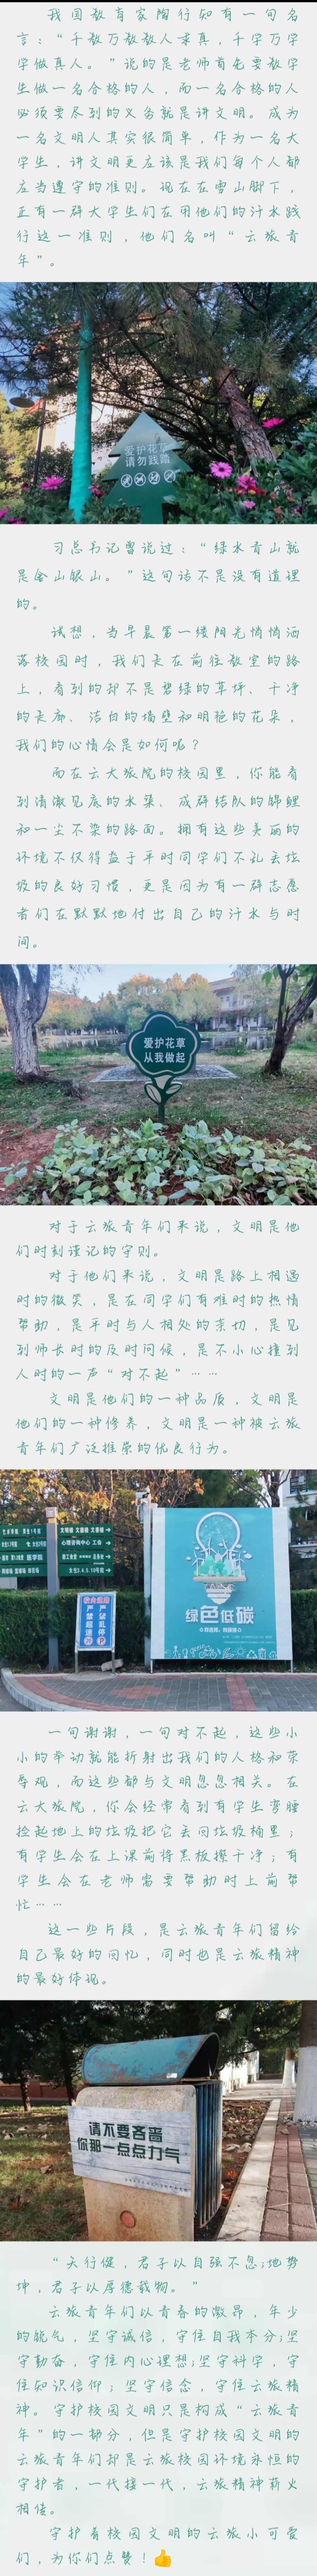 我国教育家陶行知有一句名
言：“千教万教教人求真，千学万学
学做真人。”说的是老师首先要教学
生做一名合格的人，而一名合格的人
必须要尽到的义务就是讲文明。成为
一名文明人其实很简单，作为一名大
学生，讲文明更应该是我们每个人都
应当遵守的准则。现在在雪山脚下，
正有一群大学生们在用他们的汗水践
行这一准则，他们名叫“云旅青
年”。
爱护花草
请勿践踏
习总书记曾说过：“绿水青山就
是金山银山。”这句话不是没有道理
的。
试想，当早晨第一缕阳光悄悄洒
落校园时，我们走在前往教室的路
上，看到的却不是碧绿的草坪、干净
的走廊、洁白的墙壁和明艳的花朵，
我们的心情会是如何呢？
而在云大旅院的校园里，你能看
到清澈见底的水渠、成群结队的锦鲤
和一尘不染的路面。拥有这些美丽的
环境不仅得益于平时同学们不乱丢垃
圾的良好习惯，更是因为有一群志愿
者们在默默地付出自己的汗水与时
间。
爱护花草
从我做起
对于云旅青年们来说，文明是他
们时刻谨记的守则。
对于他们来说，文明是路上相遇
时的微笑，是在同学们有难时的热情
帮助，是平时与人相处的亲切，是见
到师长时的及时问候，是不小心撞到
人时的一声“对不起”……
文明是他们的一种品质，文明是
他们的一种修养，文明是一种被云旅
青年们广泛推崇的优良行为。
校内道路
严禁超速
严禁乱停
绿色低碳
一句谢谢，一句对不起，这些小
小的举动就能折射出我们的人格和荣
辱观，而这些都与文明息息相关。在
云大旅院，你会经常看到有学生弯腰
捡起地上的垃圾把它丢向垃圾桶里；
有学生会在上课前将黑板擦干净；有
学生会在老师需要帮助时上前帮
忙……
这一些片段，是云旅青年们留给
自己最好的回忆，同时也是云旅精神
的最好体现。
请不要吝啬
你那一点点力气
“天行健，君子以自强不息;地势
坤，君子以厚德载物。”
云旅青年们以青春的激昂，年少
的锐气，坚守诚信，守住自我本分;坚
守勤奋，守住内心理想;坚守科学，守
住知识信仰；坚守信念，守住云旅精
神。守护校园文明只是构成“云旅青
年”的一部分，但是守护校园文明的
云旅青年们却是云旅校园环境永恒的
守护者，一代接一代，云旅精神薪火
相传。
守护着校园文明的云旅小可爱
们，为你们点赞！👍